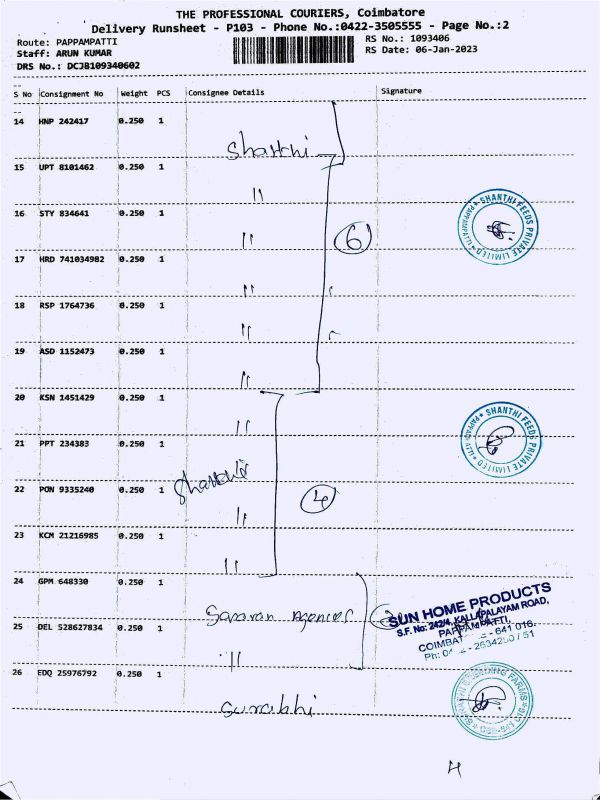 THE PROFESSIONAL COURIERS, Coimbatore
Delivery Runsheet - P103 - Phone No.:0422-3505555 - Page No.:2
Route: PAPPAMPATTI
Staff: ARUN KUMAR
DRS No.: DCJB109340602
RS No.: 1093406
RS Date: 06-Jan-2023
S No Consignment No Weight PCS Consignee Details Signature
14 HNP 242417 0.250 1
Shatthi
15 UPT 8101462 0.250 1 "
16 STY 834641 0.250 1 "
SHANTHI FEEDS PRIVATE LIMITED PAPPAMPATTI
6
17 HRD 741034982 0.250 1 "
18 RSP 1764736 0.250 1 "
19 ASD 1152473 0.250 1 "
20 KSN 1451429 0.250 1 "
SHANTHI FEEDS PRIVATE LIMITED
21 PPT 234383 0.250 1
Shatthi
22 PON 9335240 0.250 1 "
4
23 KCM 21216985 0.250 1 "
24 GPM 648330 0.250 1
Saravan Agencies
SUN HOME PRODUCTS
S.F. No: 242/4, KALLAPALAYAM ROAD,
PAPPAMPATTI,
COIMBAT - 641 016.
25 DEL 528627834 0.250 1 "
26 EDQ 25976792 0.250 1
Surabhi
4